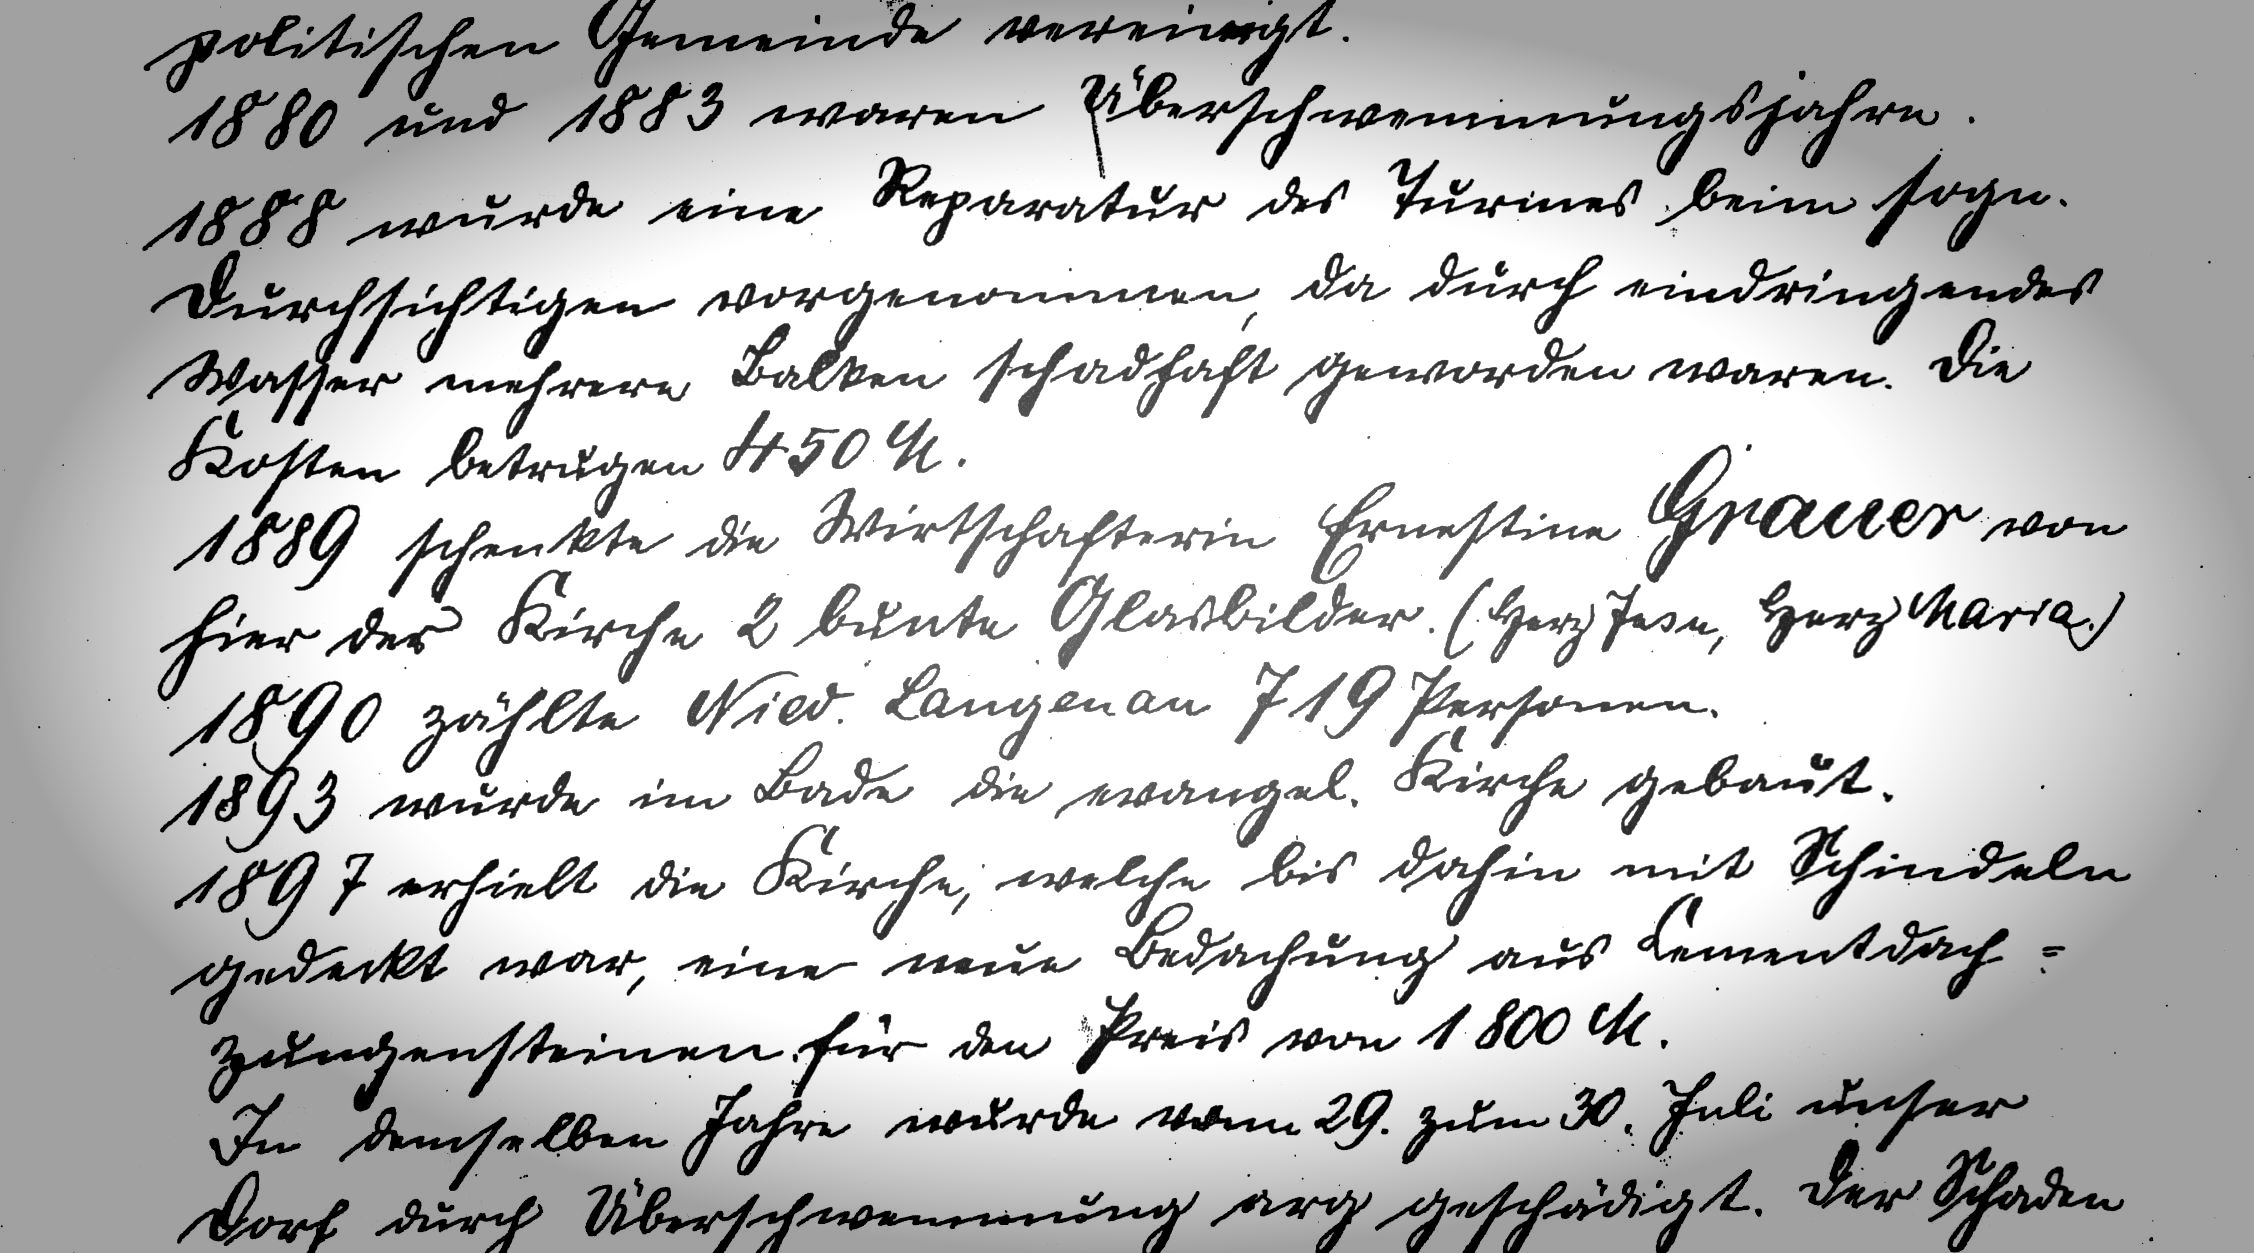 politischen Gemeinde vereinigt.
1880 und 1883 waren Überschwemmungsjahre.
1888 wurde eine Reparatur des Turmes beim sogn.
Durchsichtigen vorgenommen, da durch eindringendes
Wasser mehrere Balken schadhaft geworden waren. Die
Kosten betrugen 450 M.
1889 schenkte die Wirtschafterin Ernestine Grauer von
hier der Kirche 2 bunte Glasbilder. (Herz Jesu, Herz Maria.)
1890 zählte Nied. Langenau 719 Personen.
1893 wurde im Bade die evangel. Kirche gebaut.
1897 erhielt die Kirche, welche bis dahin mit Schindeln
gedeckt war, eine neue Bedachung aus Cementdach=
zungensteinen für den Preis von 1800 M.
In demselben Jahre wurde vom 29. zum 30. Juli unser
Dorf durch Überschwemmung arg geschädigt. Der Schaden